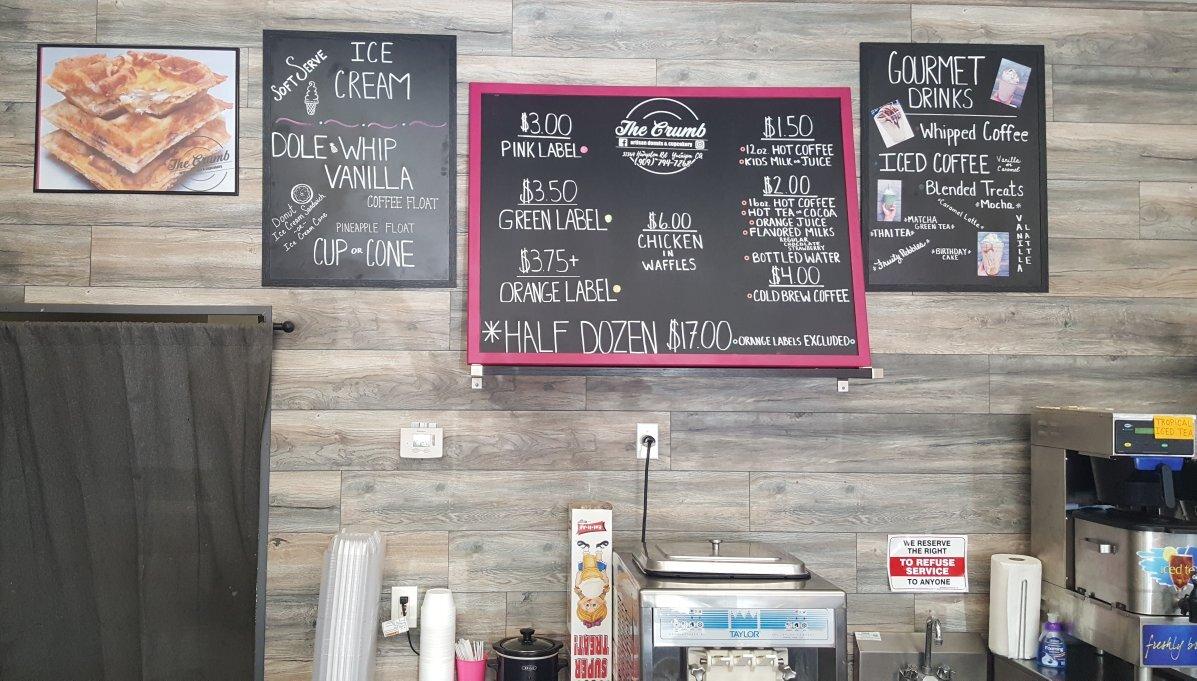 The Crumb
artisan donuts & cupcakery
SOFT SERVE
ICE
CREAM
DOLE WHIP
VANILLA
COFFEE FLOAT
Donut
Ice Cream Sandwich
or
Ice Cream Cone
PINEAPPLE FLOAT
CUP OR CONE
$3.00
PINK LABEL
$3.50
GREEN LABEL
$3.75+
ORANGE LABEL
The Crumb
artisan donuts & cupcakery
Yucaipa CA
(909) 794-7268
$6.00
CHICKEN
IN
WAFFLES
$1.50
12oz. HOT COFFEE
KIDS MILK OR JUICE
$2.00
16oz. HOT COFFEE
HOT TEA OR COCOA
ORANGE JUICE
FLAVORED MILKS
REGULAR
CHOCOLATE
STRAWBERRY
BOTTLED WATER
$4.00
COLD BREW COFFEE
*HALF DOZEN $17.00 ORANGE LABELS EXCLUDED
GOURMET
DRINKS
Whipped Coffee
ICED COFFEE Vanilla or Caramel
Blended Treats
*Mocha*
*Caramel Latte*
*MATCHA
GREEN TEA*
*THAI TEA*
*Fruity Pebbles*
*BIRTHDAY*
CAKE
VANILLA
LATTE
TROPICAL
ICED TEA
WE RESERVE
THE RIGHT
TO REFUSE
SERVICE
TO ANYONE
Eat-It-All
SUPER
TREAT!
TAYLOR
iced te
freshly b